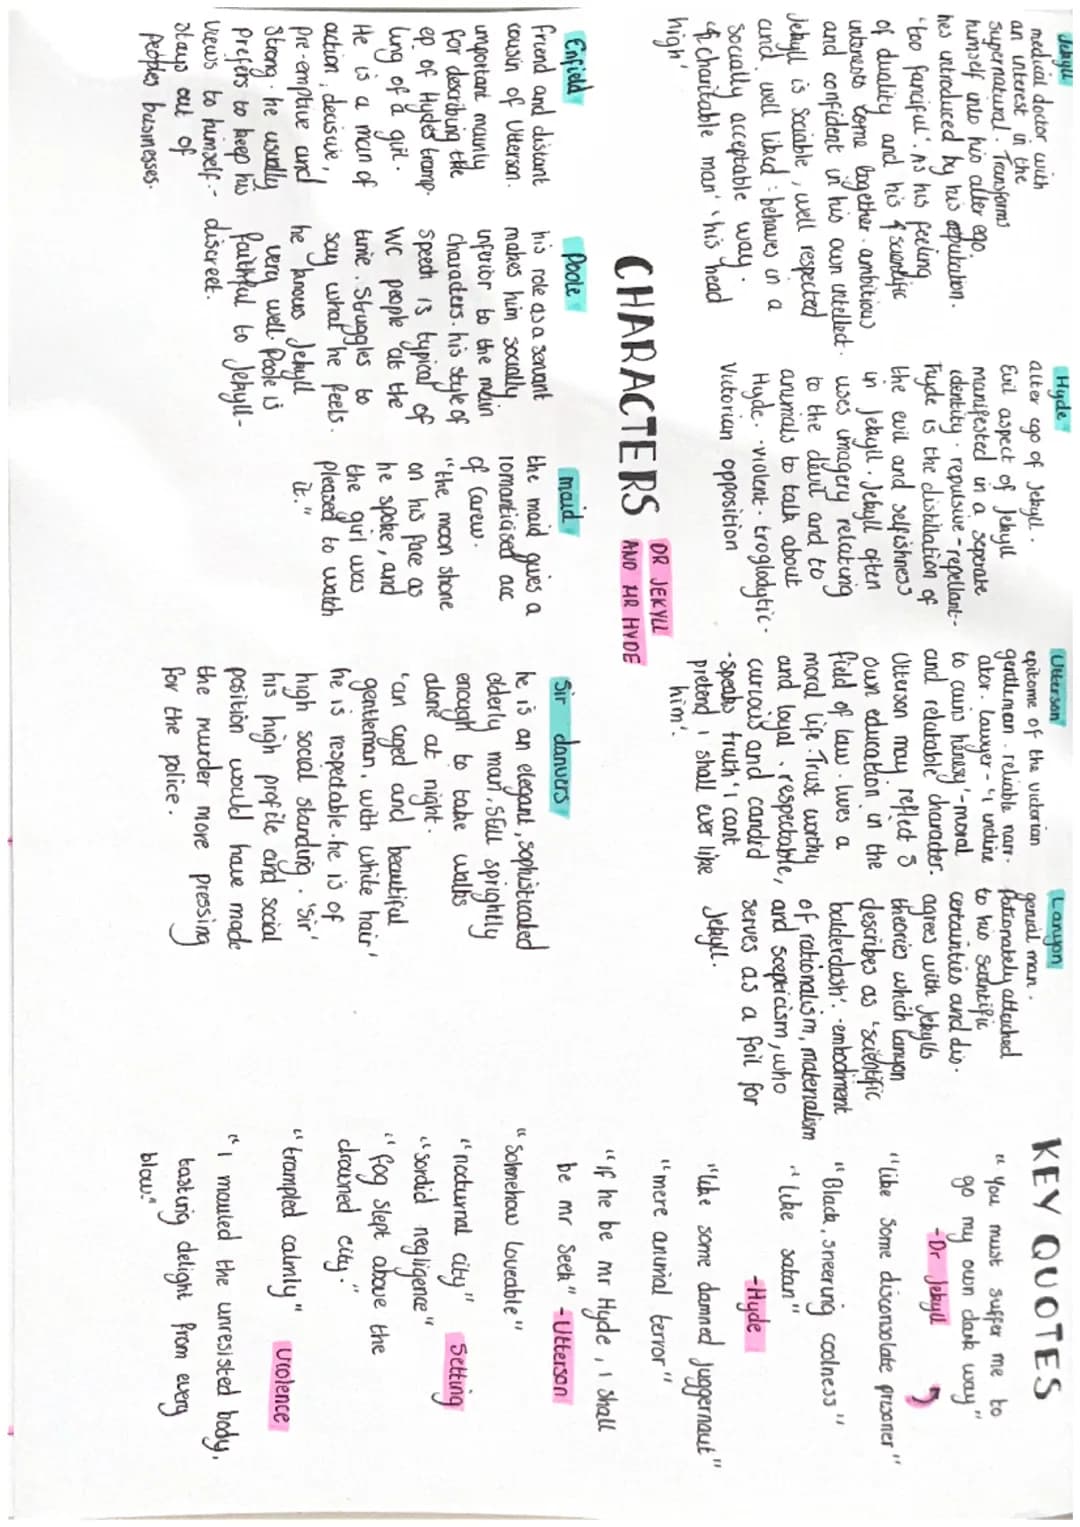 Jekyll
medical doctor with
an interest in the
supernatural. Transforms
himself into his alter ego.
hes introduced by his reputation.
'too fanciful'. As his feeling
of duality and his scientific
interests come together. ambitious
and confident in his own intellect.
Jekyll is sociable, well respected
and well liked - behaves in a
socially acceptable way.
charitable man' 'his head
high'
Hyde
alter ego of Jekyll.
Evil aspect of Jekyll
manifested in a seperate
identity. repulsive - repellant-
Hyde is the distilation of
the evil and selfishness
in Jekyll. Jekyll often
uses imagery relating
to the devil and to
animals to talk about
Hyde. - violent - troglodytic -
Victorian opposition
Utterson
epitome of the victorian
gentleman. reliable narr-
ator. lawyer - 'i incline
to cains heresy' - moral
and relatable character.
Utterson may reflect S
own education in the
field of law. lives a
moral life. Trust worthy
and loyal. respectable,
curious and candid
- speaks truth 'i cant
pretend i shall ever like
him'.
Lanyon
genial man.
Pationately attached
to his scientific
certainties and dis-
agrees with Jekylls
theories which Lanyon
describes as 'scientific
balderdash'. - embodiment
of rationalism, materialism
and scepticism, who
serves as a foil for
Jekyll.
CHARACTERS
DR JEKYLL
AND MR HYDE
Enfield
friend and distant
cousin of Utterson.
important mainly
for describing the
ep. of Hydes tramp-
ling of a girl.
He is a man of
action, decisive,
pre-emptive and
strong. he usually
prefers to keep his
views to himself. -
stays out of
peoples businesses.
Poole
his role as a servant
makes him socially
inferior to the main
characters. his style of
speech is typical of
WC people at the
time. Struggles to
say what he feels.
he knows Jekyll
very well. Poole is
faithful to Jekyll -
discreet.
maid
the maid gives a
romanticised acc
of Carew.
"the moon shone
on his face as
he spoke, and
the girl was
pleased to watch
it."
Sir danvers
he is an elegant, sophisticated
elderly man, still sprightly
enough to take walks
alone at night.
'an aged and beautiful
gentleman, with white hair'
he is respectable. he is of
high social standing. 'Sir'
his high profile and social
position would have made
the murder more pressing
for the police.
KEY QUOTES
"you must suffer me to
go my own dark way"
- Dr Jekyll
"like some disconsolate prisoner"
"Black, sneering coolness"
"like satan"
- Hyde
"like some damned juggernaut"
"mere animal terror"
"if he be mr Hyde, i shall
be mr Seek" - Utterson
"Somehow loveable"
"nocturnal city"
Setting
"sordid negligence"
"fog slept above the
drowned city."
"trampled calmly"
Violence
"i mauled the unresisted body,
tasting delight from every
blow."